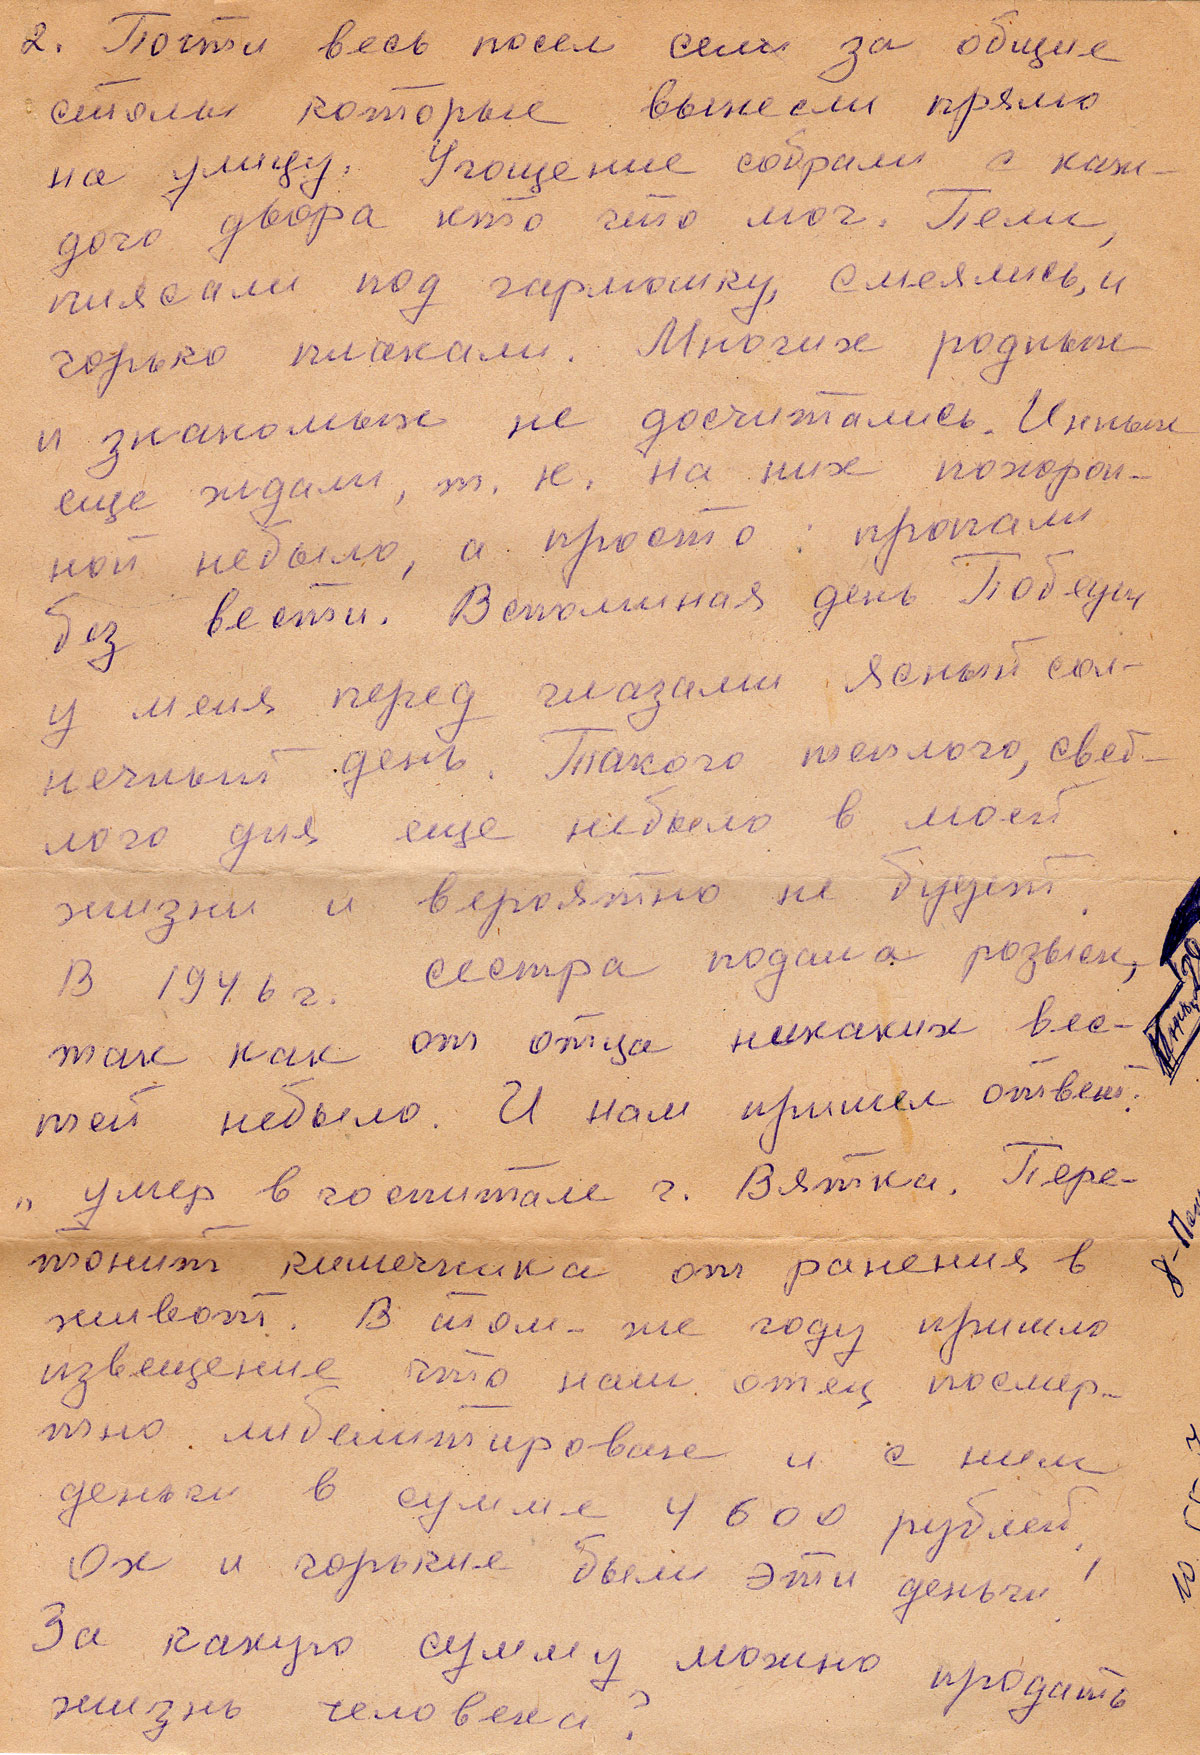 2. Почти весь посел сели за общие
столы которые вынесли прямо
на улицу. Угощение собрали с каж-
дого двора кто что мог. Пели,
плясали под гармошку, смеялись, и
горько плакали. Многих родных
и знакомых не досчитались. Инных
еще ждали, т. к. на них похорон-
ной небыло, а просто: пропали
без вести. Вспоминая день Победы
у меня перед глазами ясный сол-
нечный день. Такого теплого, свет-
лого дня еще небыло в моей
жизни и вероятно не будет.
В 1946 г. сестра подала розыск,
так как от отца никаких вес-
тей небыло. И нам пришел ответ:
„ умер в госпитале г. Вятка. Пере-
тонит кишечника от ранения в
живот. В том-же году пришло
извещение что наш отец посмер-
тно либелитирован и с ним
деньги в сумме 4600 рублей.
Ох и горькие были эти деньги!
За какую сумму можно продать
жизнь человека?